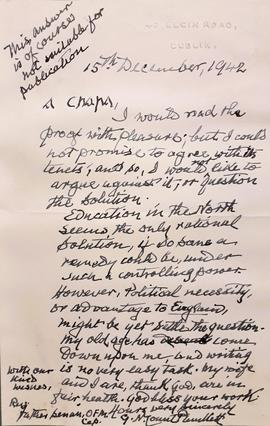 This answer
is of course
not suitable for
publication
40, ELGIN ROAD,
DUBLIN.
15th December, 1942
A Chara,
I would read the
proof with pleasure, but I could
not promise to agree with its
tenets; and so, I would not like to
argue against it, or question
the solution.
Education in the North
seems the only rational
solution, if so sane a
remedy could be, under
such a controlling power
However, Political necessity,
or advantage to England,
might be yet settle the question.
My old age has come
down upon me, and writing
is no very easy task. My wife
and I are, thank God, are in
fair health. God bless your work
With our
kind
wishes,
Yours very sincerely
G. N. Count Plunkett
Rev.
Father Senan, O.F.M.
Cap.